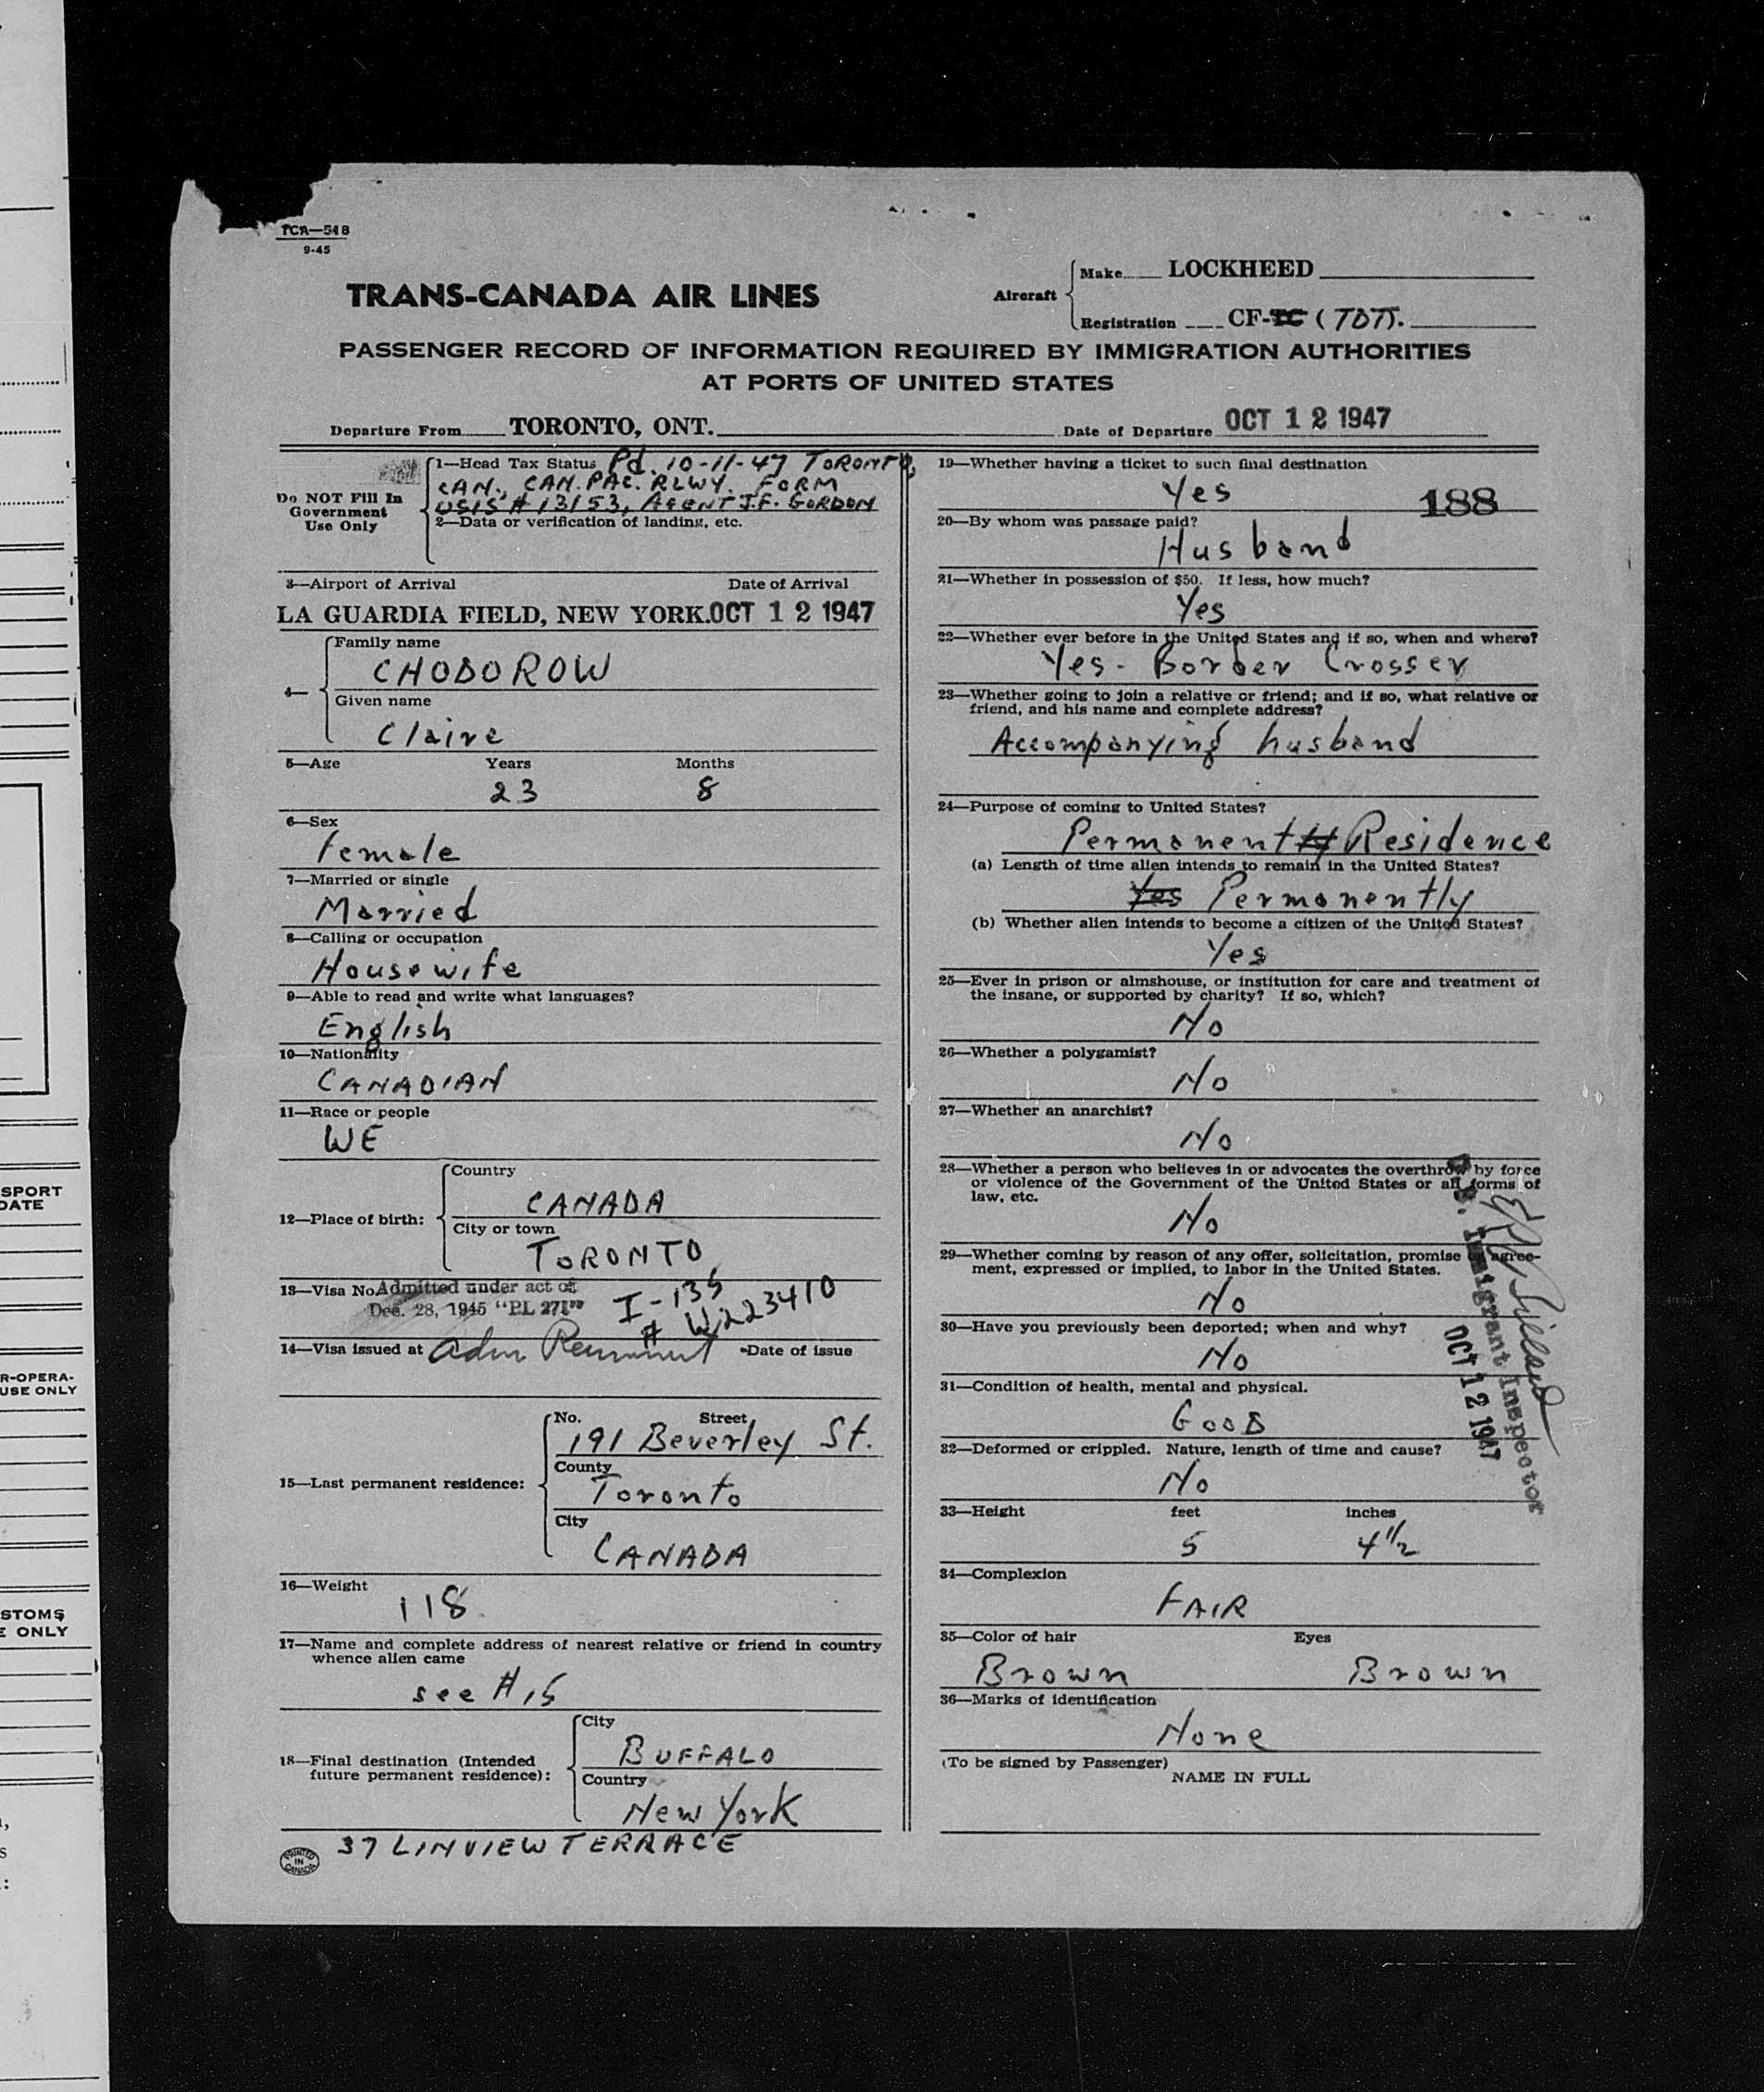 TCA—518
9-45
TRANS-CANADA AIR LINES
Aircraft
Make LOCKHEED
Registration CF-TC (TDT).
PASSENGER RECORD OF INFORMATION REQUIRED BY IMMIGRATION AUTHORITIES
AT PORTS OF UNITED STATES
Departure From TORONTO, ONT.
Date of Departure OCT 12 1947
Do NOT Fill In
Government
Use Only
1—Head Tax Status Pd. 10-11-47 TORONTO,
CAN., CAN. PAC. RLWY. FORM
USIS # 13153, AGENT J.F. GORDON
2—Data or verification of landing, etc.
3—Airport of Arrival Date of Arrival
LA GUARDIA FIELD, NEW YORK. OCT 12 1947
4—
Family name
CHODOROW
Given name
Claire
5—Age Years Months
23 8
6—Sex
Female
7—Married or single
Married
8—Calling or occupation
Housewife
9—Able to read and write what languages?
English
10—Nationality
CANADIAN
11—Race or people
WE
12—Place of birth:
Country
CANADA
City or town
TORONTO
13—Visa No. Admitted under act of
Dec. 28, 1945 "PL 271"
I-135
# W223410
14—Visa issued at Adm Date of issue
15—Last permanent residence:
No. Street
191 Beverley St.
County
Toronto
City
CANADA
16—Weight
118
17—Name and complete address of nearest relative or friend in country
whence alien came
see #15
18—Final destination (Intended
future permanent residence):
City
BUFFALO
Country
New York
37 LINVIEW TERRACE
PRINTED
IN
CANADA
19—Whether having a ticket to such final destination
Yes
188
20—By whom was passage paid?
Husband
21—Whether in possession of $50. If less, how much?
Yes
22—Whether ever before in the United States and if so, when and where?
Yes - Border Crosser
23—Whether going to join a relative or friend; and if so, what relative or
friend, and his name and complete address?
Accompanying husband
24—Purpose of coming to United States?
Permanent Residence
(a) Length of time alien intends to remain in the United States?
Yes Permanently
(b) Whether alien intends to become a citizen of the United States?
Yes
25—Ever in prison or almshouse, or institution for care and treatment of
the insane, or supported by charity? If so, which?
No
26—Whether a polygamist?
No
27—Whether an anarchist?
No
28—Whether a person who believes in or advocates the overthrow by force
or violence of the Government of the United States or all forms of
law, etc.
No
29—Whether coming by reason of any offer, solicitation, promise or agree-
ment, expressed or implied, to labor in the United States.
No
30—Have you previously been deported; when and why?
No
31—Condition of health, mental and physical.
Good
32—Deformed or crippled. Nature, length of time and cause?
No
33—Height feet inches
5 4 1/2
34—Complexion
FAIR
35—Color of hair Eyes
Brown Brown
36—Marks of identification
None
(To be signed by Passenger)
NAME IN FULL
Immigrant Inspector
OCT 12 1947
SPORT
DATE
R-OPERA-
USE ONLY
STOMS
E ONLY